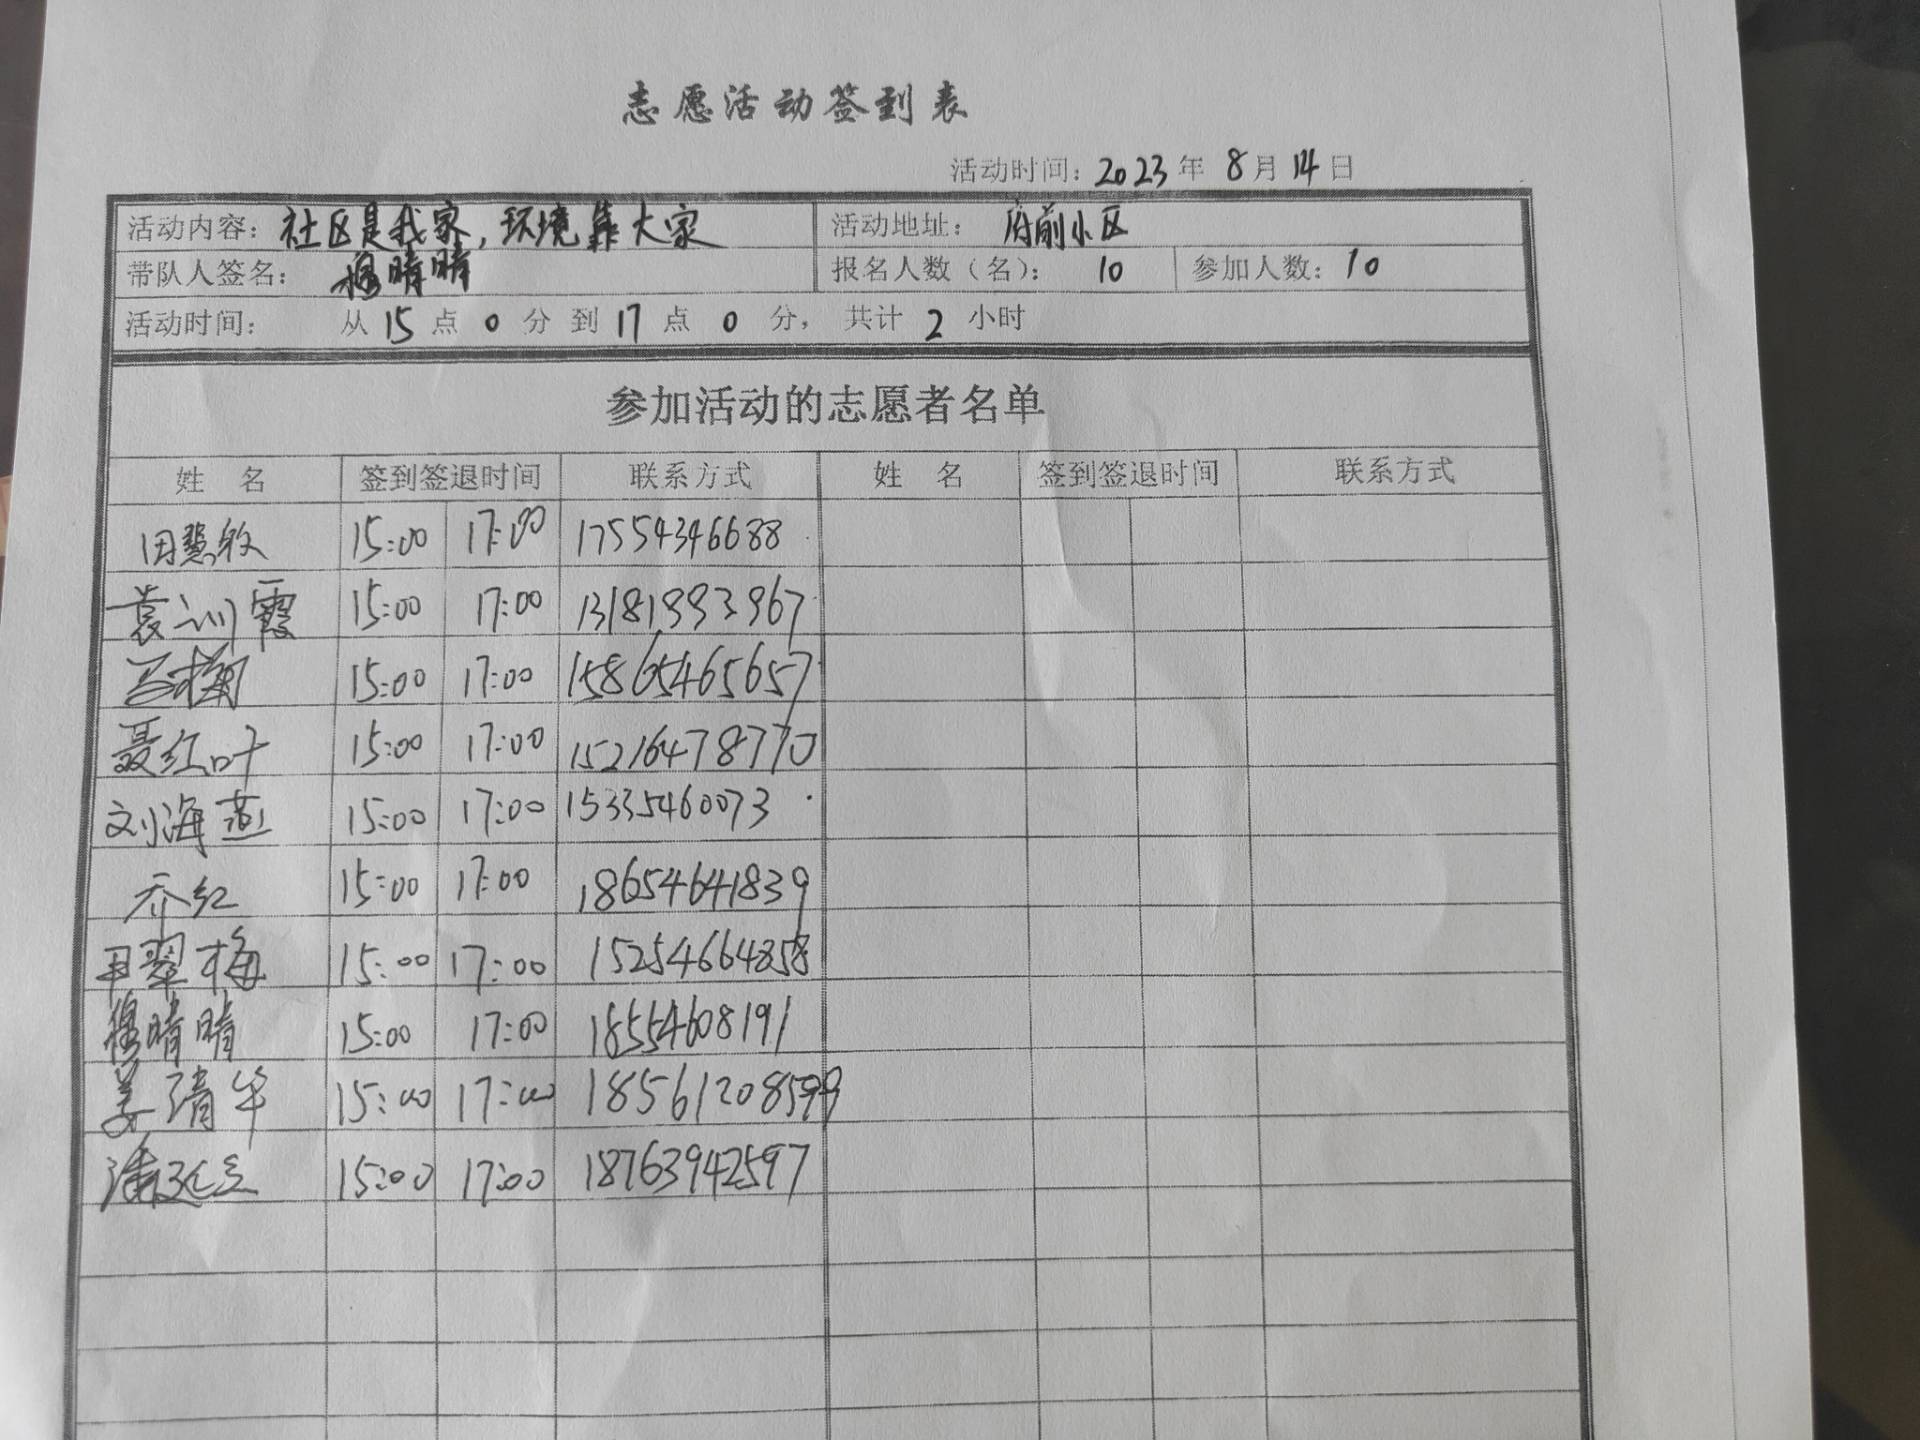 志愿活动签到表
活动时间：2023年 8月14日
活动内容：社区是我家，环境靠大家 活动地址：府前小区
带队人签名：穆晴晴 报名人数（名）：10 参加人数：10
活动时间： 从15点0分到17点0分，共计2小时
参加活动的志愿者名单
姓 名 签到签退时间 联系方式 姓 名 签到签退时间 联系方式
田慧敏 15:00 17:00 17554346688
袁训霞 15:00 17:00 13181993967
15:00 17:00 15865465657
聂红叶 15:00 17:00 15216478770
刘海燕 15:00 17:00 15335460073
乔红 15:00 17:00 18654641839
尹翠梅 15:00 17:00 15254664858
穆晴晴 15:00 17:00 18554608191
姜清华 15:00 17:00 18561208599
15:00 17:00 18763942597